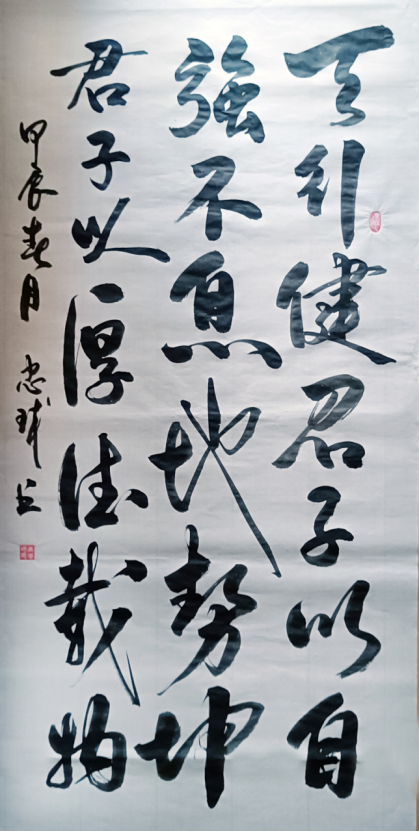 天行健君子以自
強不息地势坤
君子以厚德载物
甲辰春月 忠球书